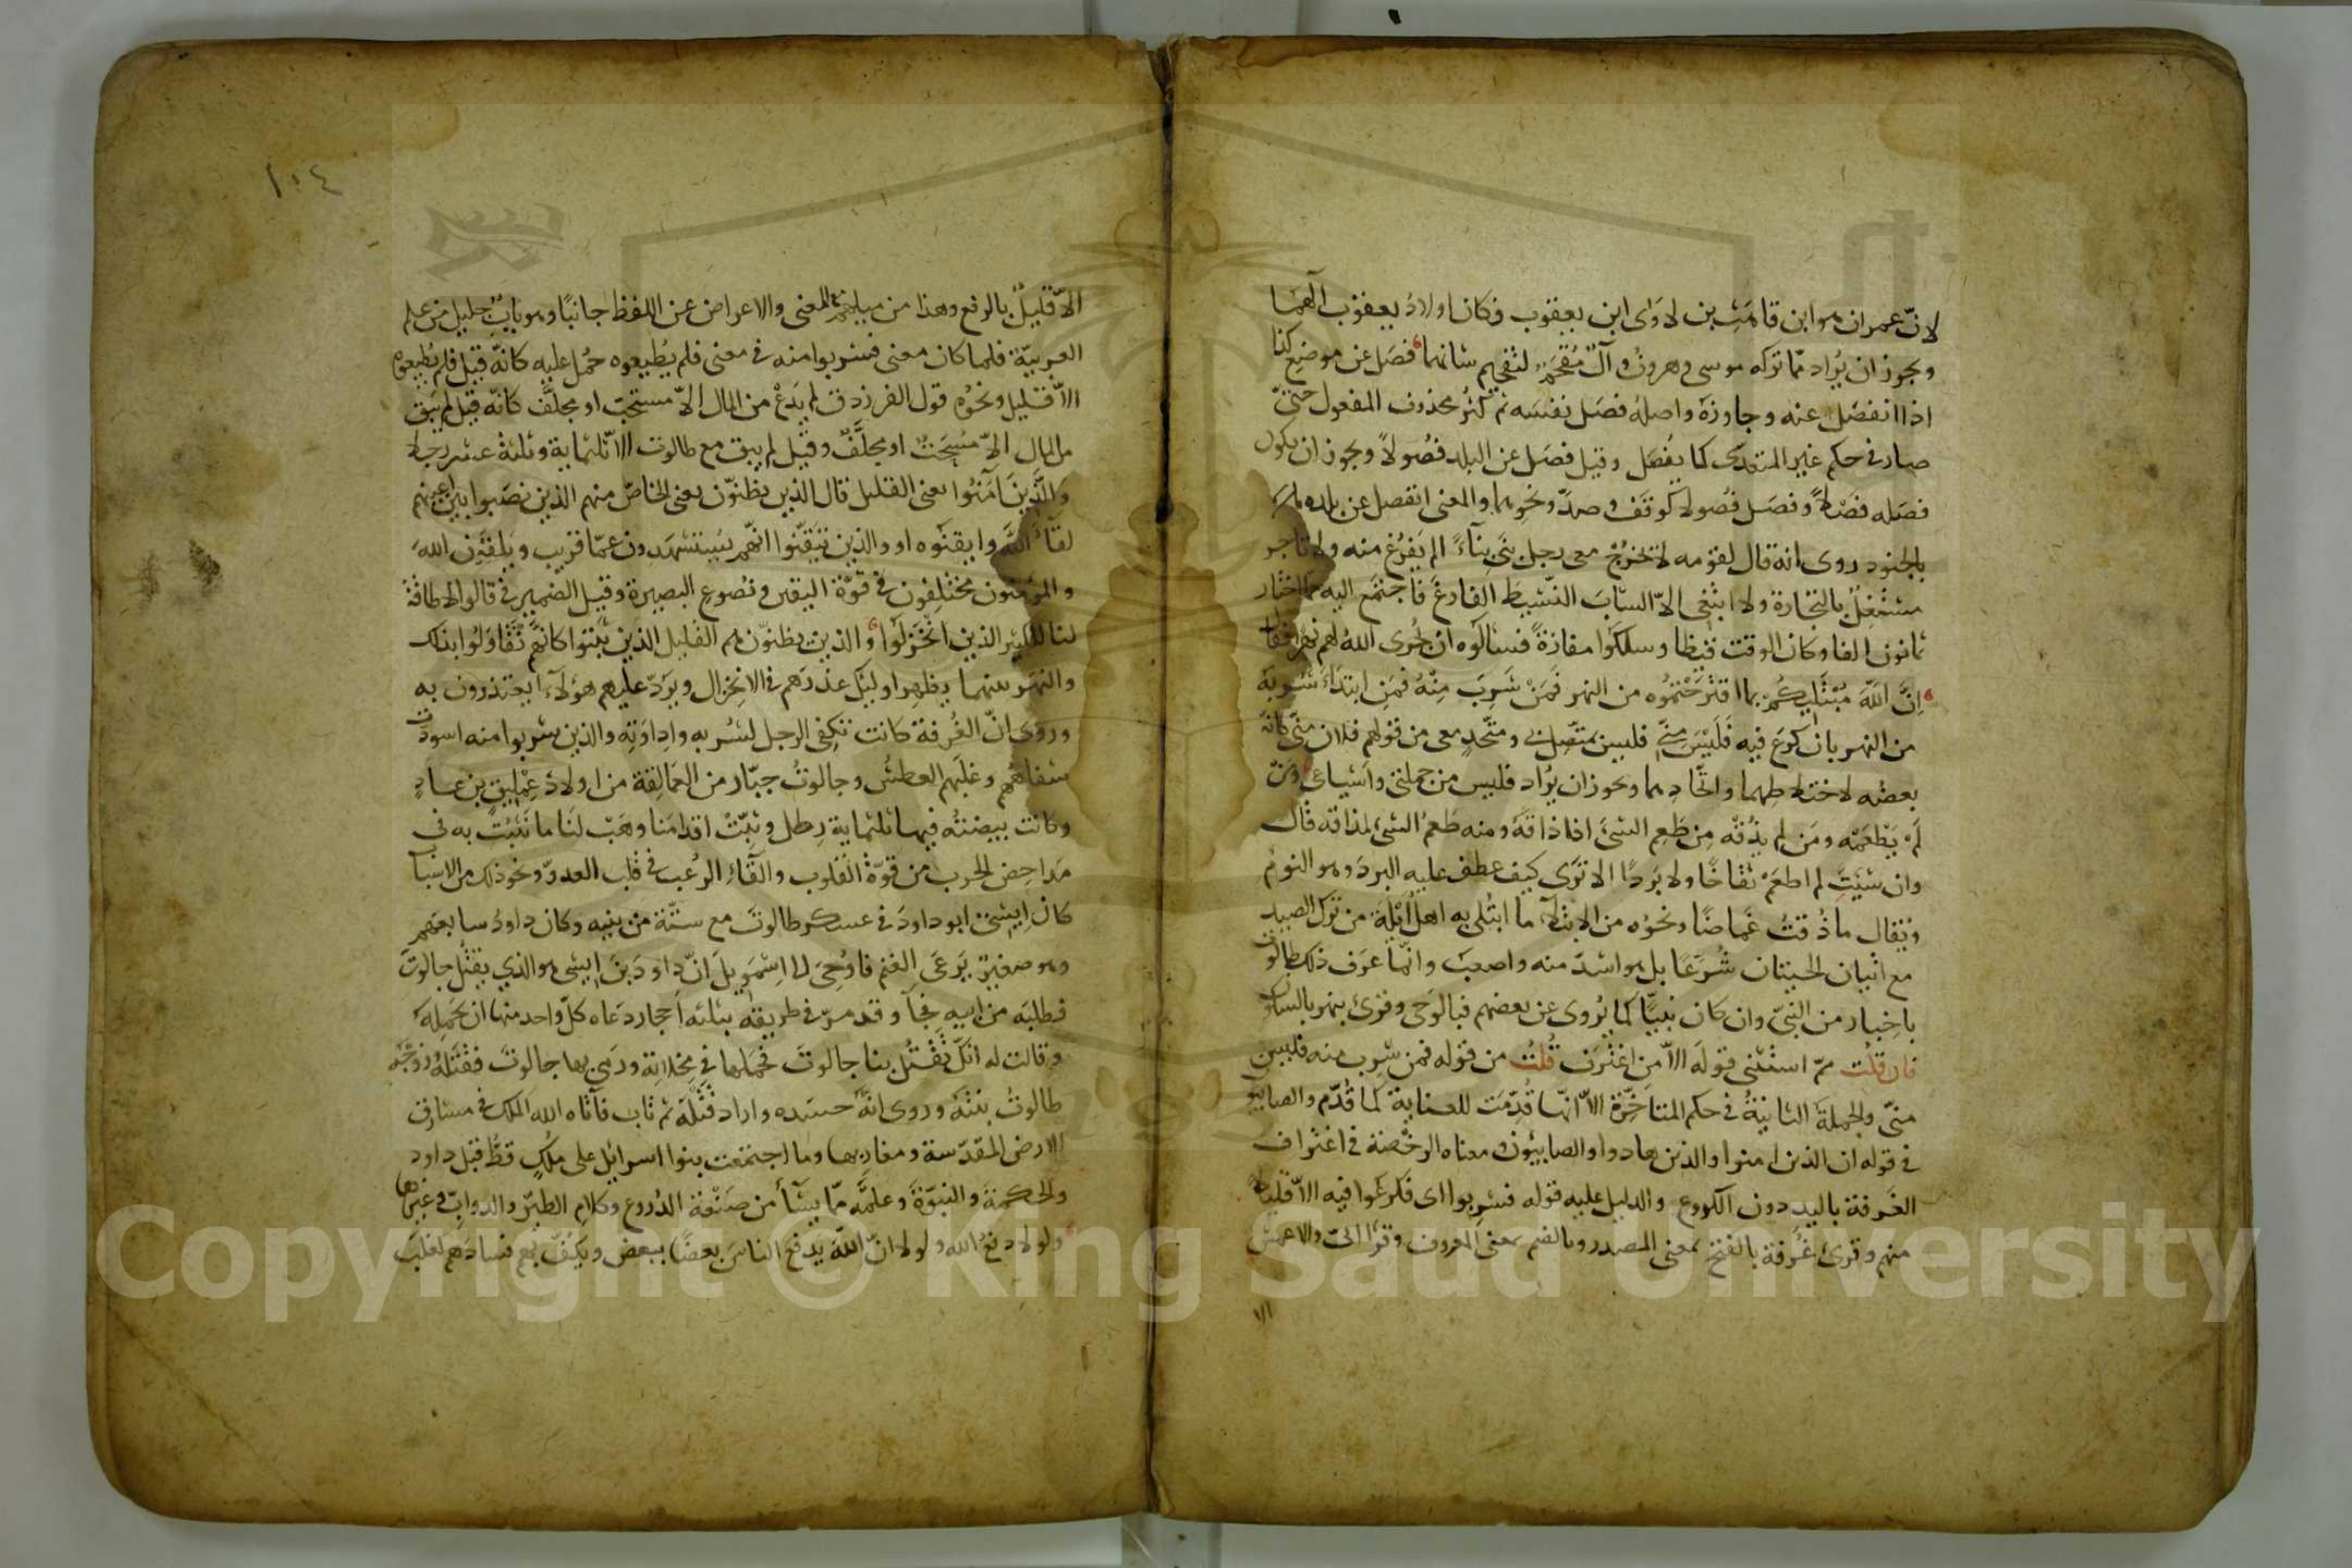 لانّ عمران هو ابن قاهث بن لاوى ابن يعقوب فكان اولادُ يعقوب آلهما
ويجوز ان يُراد ممّا تركه موسى وهرونُ وآلُ مُقحَمٌ لتفخيم شانهما فصَل عن موضع كذا
اذا انفصَل عنه وجاوزه واصلهُ فصَل نفسَه ثم كثُر محذوف المفعول حتّى
صار في حكم غير المتعدّى كانفصَل وقيل فصَل عن البلد فصُولاً ويجوز ان يكون
فصَله فصْلاً وفصَل فصُولا كوقَف وصدَّ ونحوهما والمعنى انفصل عن بلده
بالجنود روى انه قال لقومه لا يخرُجْ معى رجل بنَى بِناءً لم يَفرُغ منه ولا تاجر
مشتغِلٌ بالتجارة ولا ابتغى الاّ الشابَّ النّشيطَ الفارغَ فاجتمَع اليه ممّا اختار
ثمانون الفا وكان الوقت قيظا وسلكوا مفازةً فسالوه ان يُجرى اللهُ لهم نهرا فقال
اِنَّ اللّهَ مُبْتَلِيكُمْ بما اقترَحْتمُوه من النهر فَمَنْ شَرِبَ مِنْهُ فمَنِ ابتداَ شُرْبَه
من النهر بان كرَع فيه فَلَيْسَ مِنّى فليس بمتّصِل بى ومتّحِدٍ معى من قولهم فلان منّى كانّه
بعضُه لاختلاطهما واتّحادِهما ويجوز ان يُراد فليس من جملتى واَشياعى ومَنْ
لَمْ يَطْعَمْه ومَن لم يذُقْه مِن طَعِم الشئَ اذا ذاقَهُ ومنه طَعمُ الشئِ لمذاقه قال
وان شئتِ لم اطعَمْ نُقاخًا ولا بَردًا الا ترَى كيف عطف عليه البردَ وهو النومُ
ويُقال ما ذُقتُ غَماضًا ونحوُه من الابتلآءِ ما ابتُلِى به اهلُ اَيْلَةَ من ترك الصيد
مع اتيان الحيتان شُرَّعًا بل هو اشدّ منه واصعبُ وانّما عرَف ذلك طالوتُ
باِخبار من النبىّ وان كان نبيًّا كما يُروى عن بعضهم فبالوَحى وقرئ بنهر بالسكون
فان قلتَ ممّ استثنى قولَه الاّ من اغترف قُلتُ من قوله فمن شرِب منه فليس
منّى والجملةُ الثانيةُ فى حكم المتاخّرة الاّ انّها قُدّمَت للعناية كما قُدّم والصابئون
فى قوله ان الذين امنوا والذين هادوا والصابئون ومعناه الرخصة فى اغتراف
الغَرفة باليد دون الكروع والدليل عليه قوله فشرِبوا اى فكرَعُوا فيه الاّ قليلا
منهم وقرئ غَرفة بالفتح بمعنى المصدر وبالضم بمعنى المغروف وقرا اُبَىّ والاعمش
١٠٤
الاّ قليلٌ بالرفع وهذا من ميلهم مع المعنى والاعراض عن اللفظ جانبًا وهو بابٌ جليل من علم
العربيّة فلما كان معنى فشربوا منه فى معنى فلم يُطيعوه حُمِل عليه كانّه قيل فلم يُطيعوه
الاّ قليل ونحوُه قول الفرزدق لم يدَعْ من المال الاّ مسحت او مجلَّف كانّه قيل لم يَبق
من المال الاّ مُسْحَتٌ او مجلَّفٌ وقيل لم يبق مع طالوت الاّ ثلثماية وثلثة عشر رجلا
وَالَّذِينَ آمَنُوا يعنى القليل قال الذين يظنّون يعنى الخلّص منهم الذين نصَبوا بين اعينهم
لقآءَ اللهِ وايقنوه او والذين تيقّنوا انّهم يُستشهَدون عمّا قريب ويَلقون الله
والمؤمنون مختلِفون فى قوّة اليقين ونُصوع البصيرة وقيل الضمير فى قالوا لا طاقةَ
لنا للكثير الذين انخزلوا والذين يظنّون هم القليل الذين ثبَتوا كانّهم تقاولُوا بذلك
والنهر بينهما يظهِر اوليك عذرَهم فى الانخِزال ويَرُدّ عليهم هؤلآء ما يعتذرون به
وروى انّ الغُرفة كانت تكفى الرجل لشُربه واِداوَتِه والذين شربوا منه اسودّت
شفاهُهم وغلَبهم العطشُ وجالوتُ جبّار من العَمالِقة من اولاد عِمْلِيق بن عادٍ
وكانت بيضتُه فيها ثلثماية رِطل وثبّتْ اقدامَنا وهَبْ لنا ما نَثبُت به فى
مَداحِض الحرب من قوّة القلوب والقآءِ الرُّعب فى قلب العدوّ ونحو ذلك من الاسباب
كان اِيشى ابو داودَ فى عسكر طالوتَ مع ستّة من بنيه وكان داودُ سابعَهم
وهو صغير يَرعَى الغنم فاُوحِىَ الى اِشمَويلَ انّ داود بنَ اِيشى هو الذي يقتُل جالوتَ
فطلبَه من ابيه فجآء وقد مرّ فى طريقه بثلثه اَحجار دعاه كلّ واحد منها ان يحمِلَه
وقالت له اِنّك تَقتُل بنا جالوتَ فحمَلها فى مِخلاتِه ورمَى بها جالوتَ فقتَله وزوّجه
طالوتُ بنتَه وروى انّه حسَده واراد قتْلَه ثم تاب فآتاه الله الملك فى مشارق
الارض المقدّسة ومغارِبها وما اجتمَعت بنوا اسرائل على ملِكٍ قطُّ قبل داود
والحكمةَ والنبوّةَ وعلّمَه ممّا يشآءُ من صَنْعة الدُروع وكلامِ الطيرِ والدوابّ وغيرها
ولولا دفعُ الله ولولا انّ اللّهَ يدفع الناسَ بعضًا ببعض ويكُفّ بهم فسادَهم لغلبَ
Copyright © King Saud University